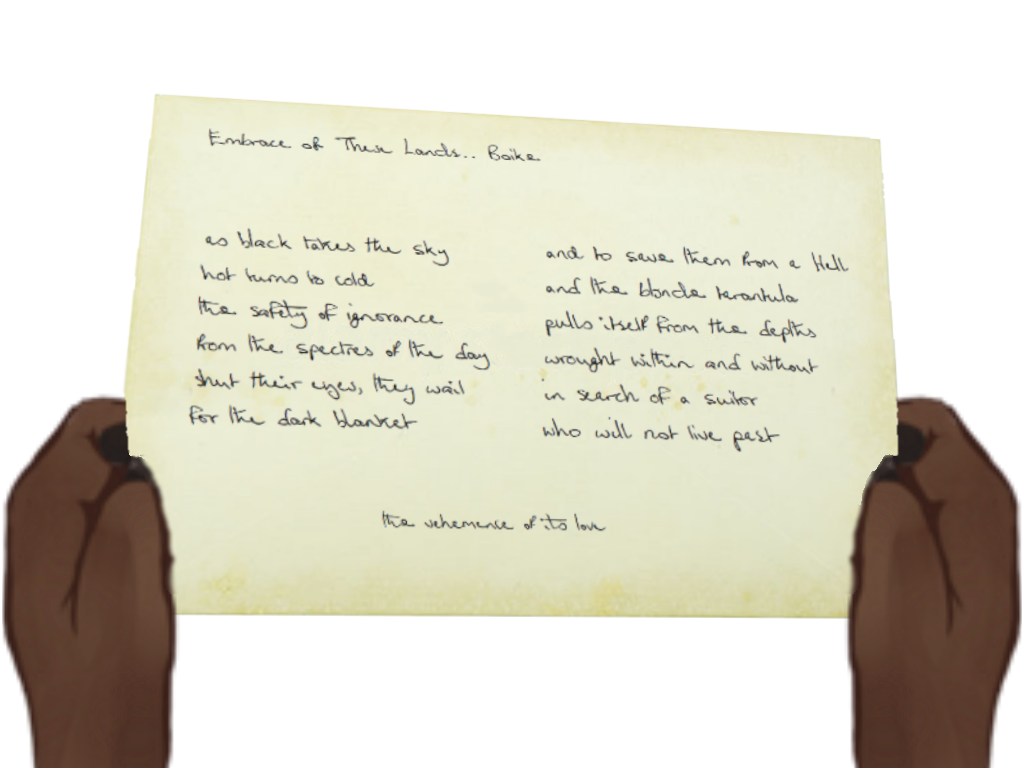 Embrace of These Lands.. Boika
as black takes the sky
hot turns to cold
the safety of ignorance
from the spectres of the day
shut their eyes, they wail
for the dark blanket
and to save them from a Hell
and the blonde tarantula
pulls itself from the depths
wrought within and without
in search of a suitor
who will not live past
the vehemence of its love